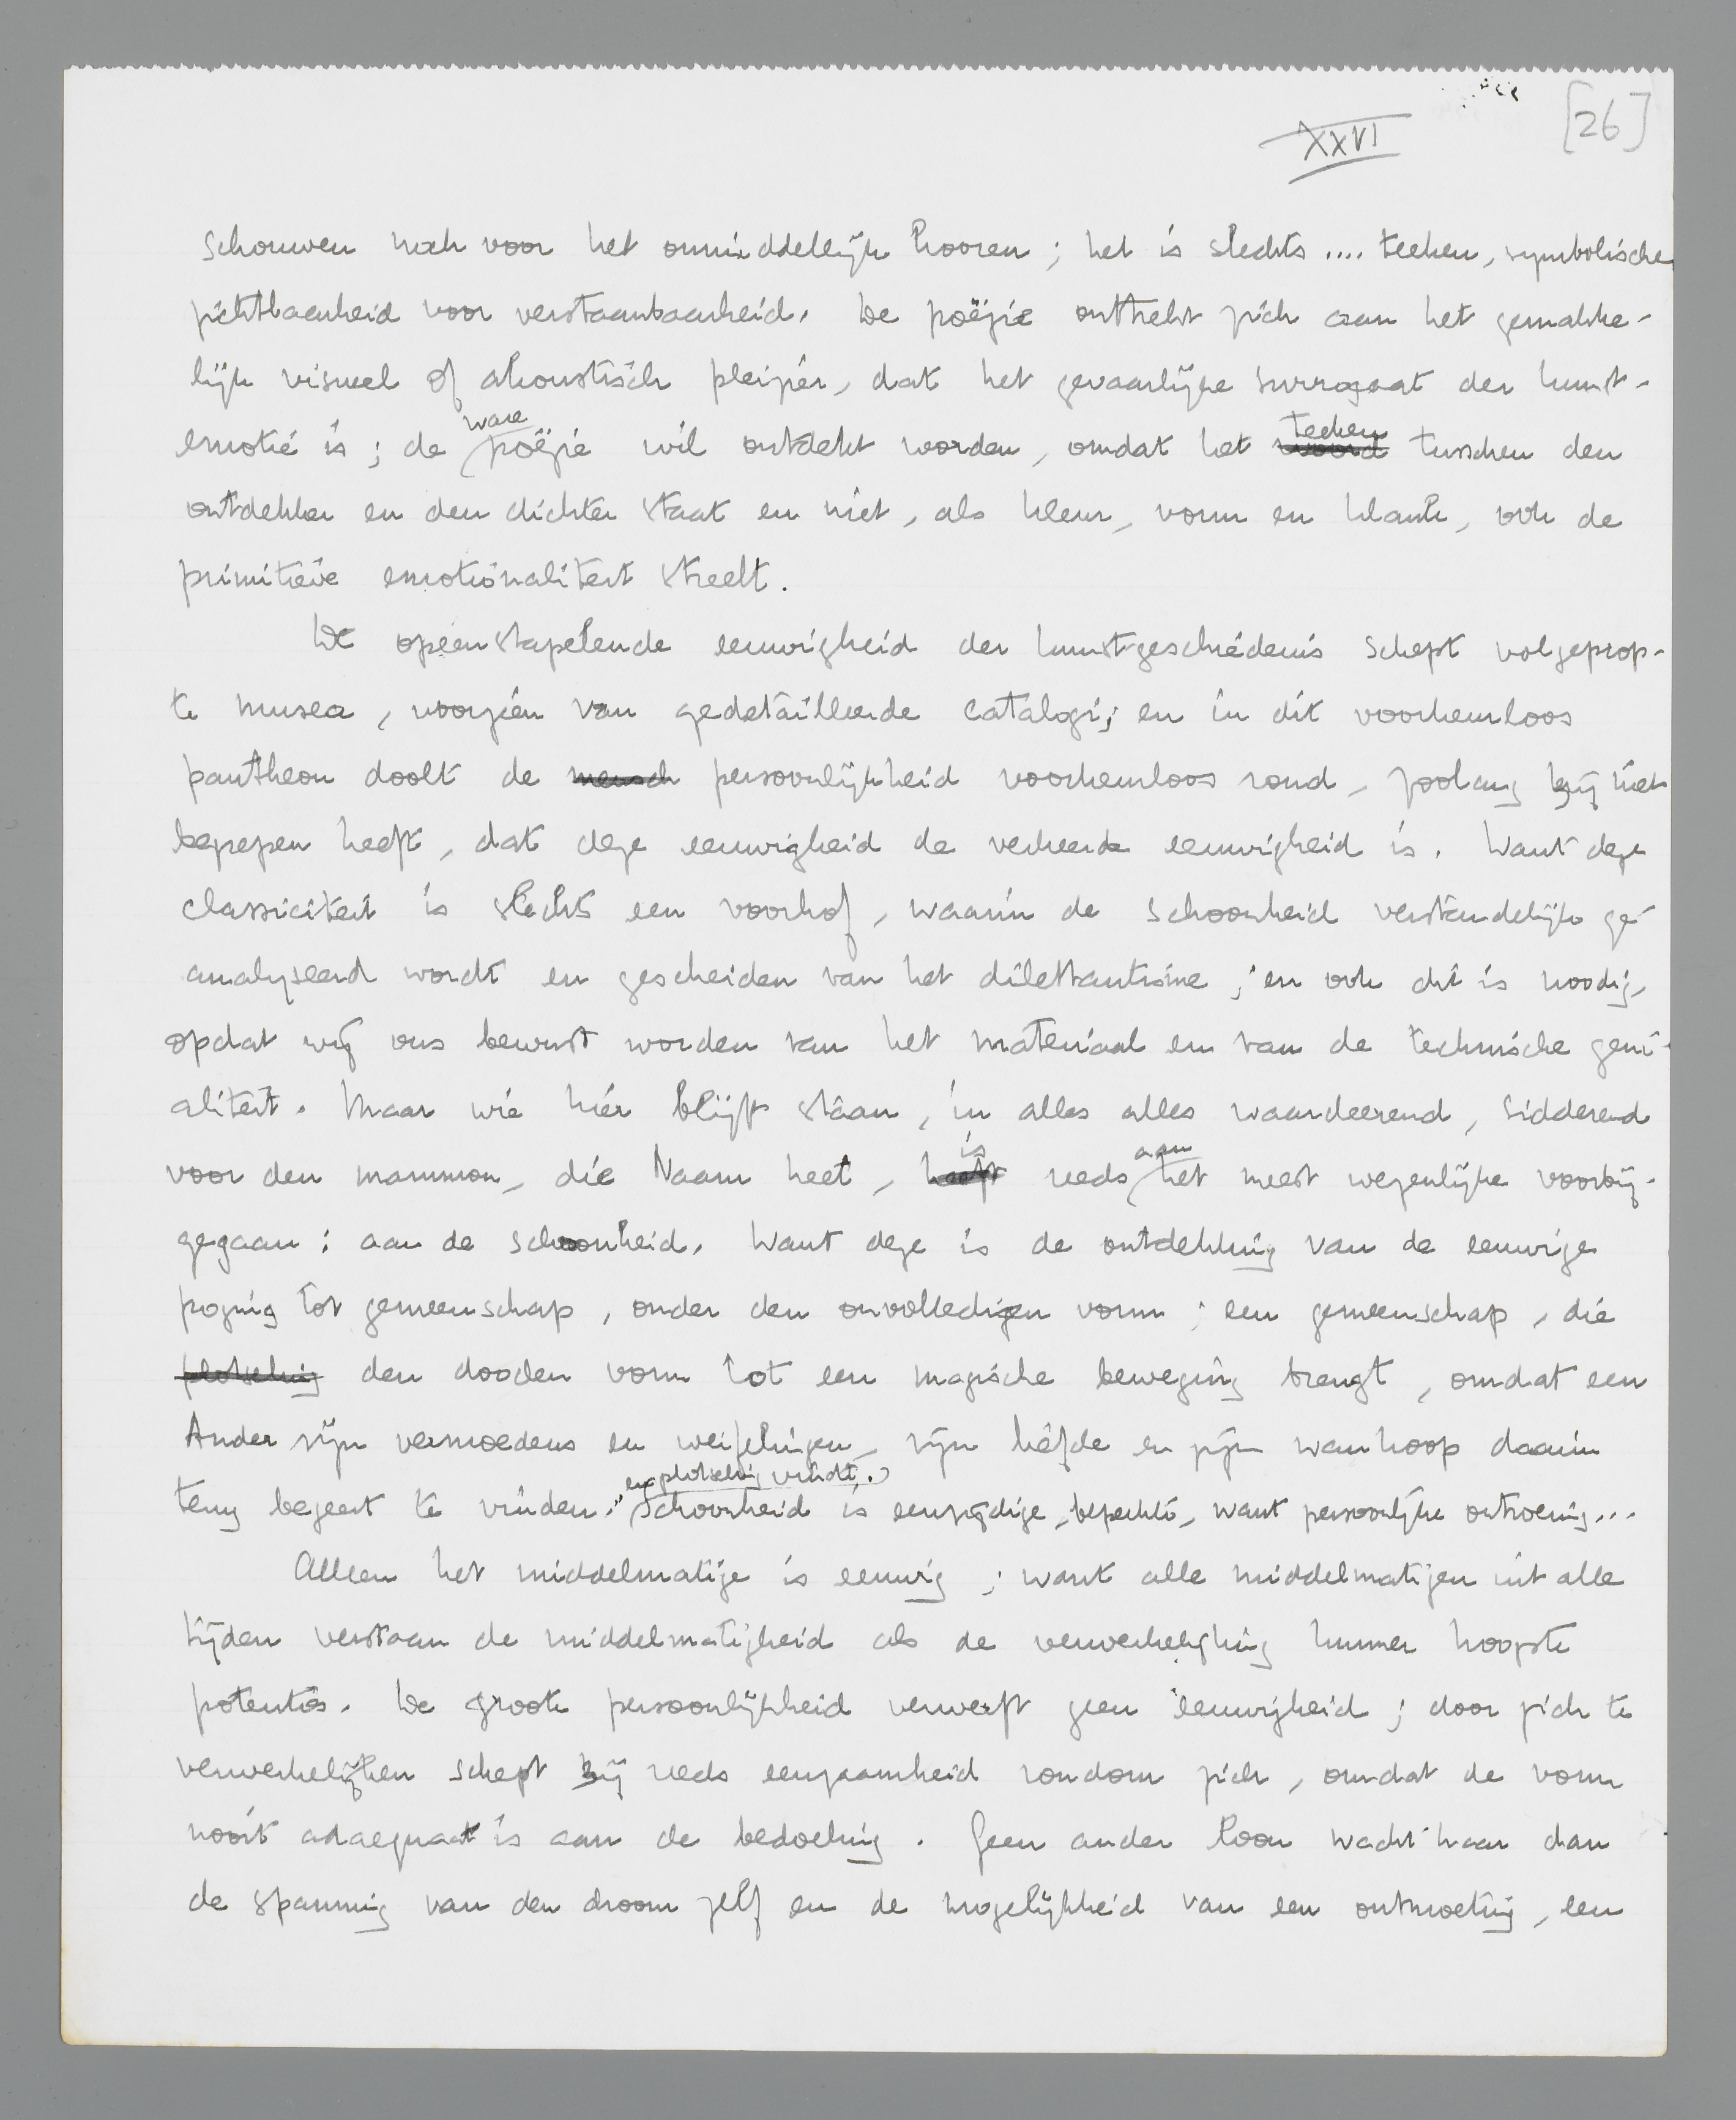 [26]
XXVI
schouwen noch voor het onmiddellijk hooren; het is slechts .... teeken, symbolische
zichtbaarheid voor verstaanbaarheid. De poëzie onttrekt zich aan het gemakke-
lijk visueel of akoustisch pleizier, dat het gevaarlijke surrogaat der kunst-
emotie is; de ware poëzie wil ontdekt worden, omdat het woord teeken tusschen den
ontdekker en den dichter staat en niet, als kleur, vorm en klank, ook de
primitieve emotionaliteit streelt.
De opeenstapelende eeuwigheid der kunstgeschiedenis schept volgeprop-
te musea, voorzien van gedetailleerde catalogi; en in dit voorkeurloos
pantheon doolt de mensch persoonlijkheid voorkeurloos rond, zoolang zij niet
begrepen heeft, dat deze eeuwigheid de verkeerde eeuwigheid is. Want deze
classiciteit is slechts een voorhof, waarin de schoonheid verstandelijk ge-
analyseerd wordt en gescheiden van het dilettantisme; en ook dit is noodig,
opdat wij ons bewust worden van het materiaal en van de technische geni-
aliteit. Maar wie hier blijft staan, in alles alles waardeerend, sidderend
voor den mammon, die Naam heet, heeft is reeds aan het meest wezenlijke voorbij-
gegaan: aan de schoonheid. Want deze is de ontdekking van de eeuwige
poging tot gemeenschap, onder den onvolledigen vorm; een gemeenschap, die
plotseling den dooden vorm tot een magische beweging brengt, omdat een
Ander zijn vermoedens en weifelingen, zijn liefde en zijn wanhoop daarin
terug begeert te vinden en plotseling vindt. Schoonheid is eenzijdige, beperkte, want persoonlijke ontroering...
Alleen het middelmatige is eeuwig; want alle middelmatigen uit alle
tijden verstaan de middelmatigheid als de verwerkelijking hunner hoogste
potenties. De groote persoonlijkheid verwerft geen eeuwigheid; door zich te
verwerkelijken schept zij reeds eenzaamheid rondom zich, omdat de vorm
nooit adaequaat is aan de bedoeling. Geen ander loon wacht haar dan
de spanning van den droom zelf en de mogelijkheid van een ontmoeting, een